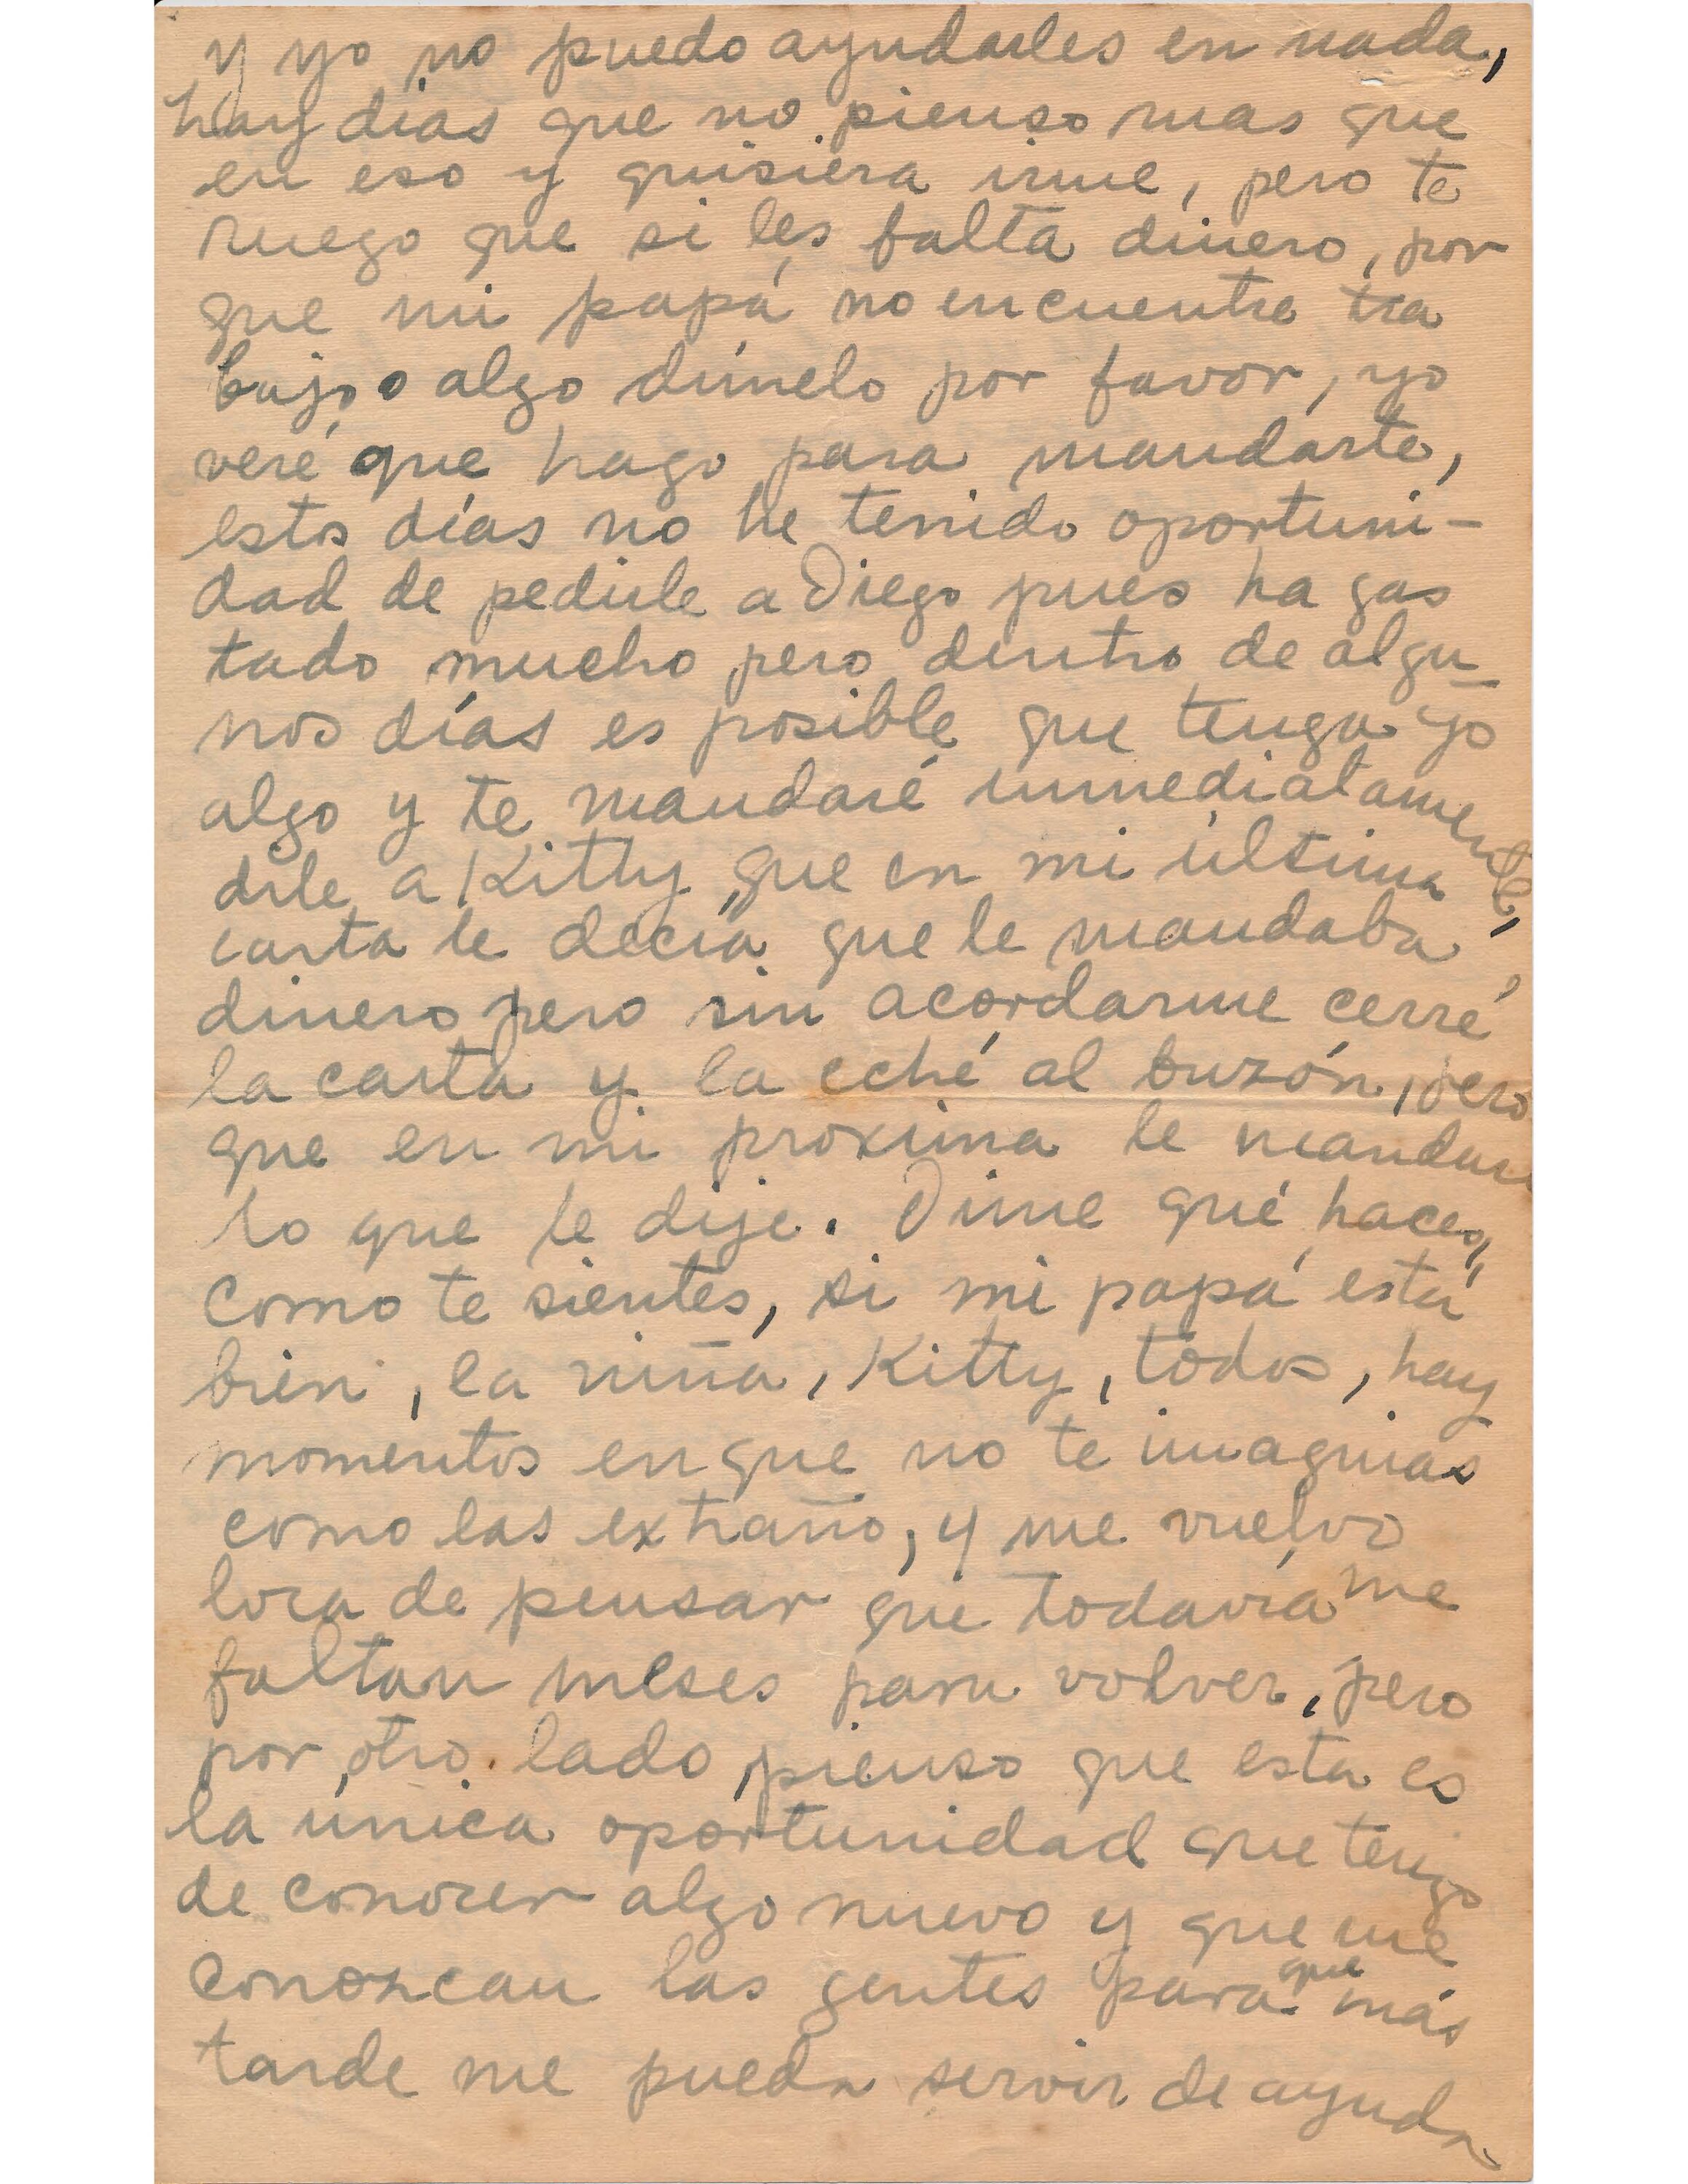 y yo no puedo ayudarles en nada,
hay días que no pienso mas que
en eso y quisiera irme, pero te
ruego que si les falta dinero, por
que mi papá no encuentre tra
bajo o algo dímelo por favor, yo
veré que hago para mandarte,
estos días no he tenido oportuni-
dad de pedirle a Diego pues ha gas
tado mucho pero dentro de algu-
nos días es posible que tenga yo
algo y te mandaré inmediatamente,
dile a Kitty que en mi última
carta le decía que le mandaba
dinero pero sin acordarme cerré
la carta y la eché al buzón, pero
que en mi proxima le mandaré
lo que le dije. Dime qué haces,
como te sientes, si mi papá está
bien, la niña, Kitty, todos, hay
momentos en que no te imaginas
como las extraño, y me vuelvo
loca de pensar que todavía me
faltan meses para volver, pero
por otro lado pienso que esta es
la única oportunidad que tengo
de conocer algo nuevo y que me
conozcan las gentes para que más
tarde me pueda servir de ayuda